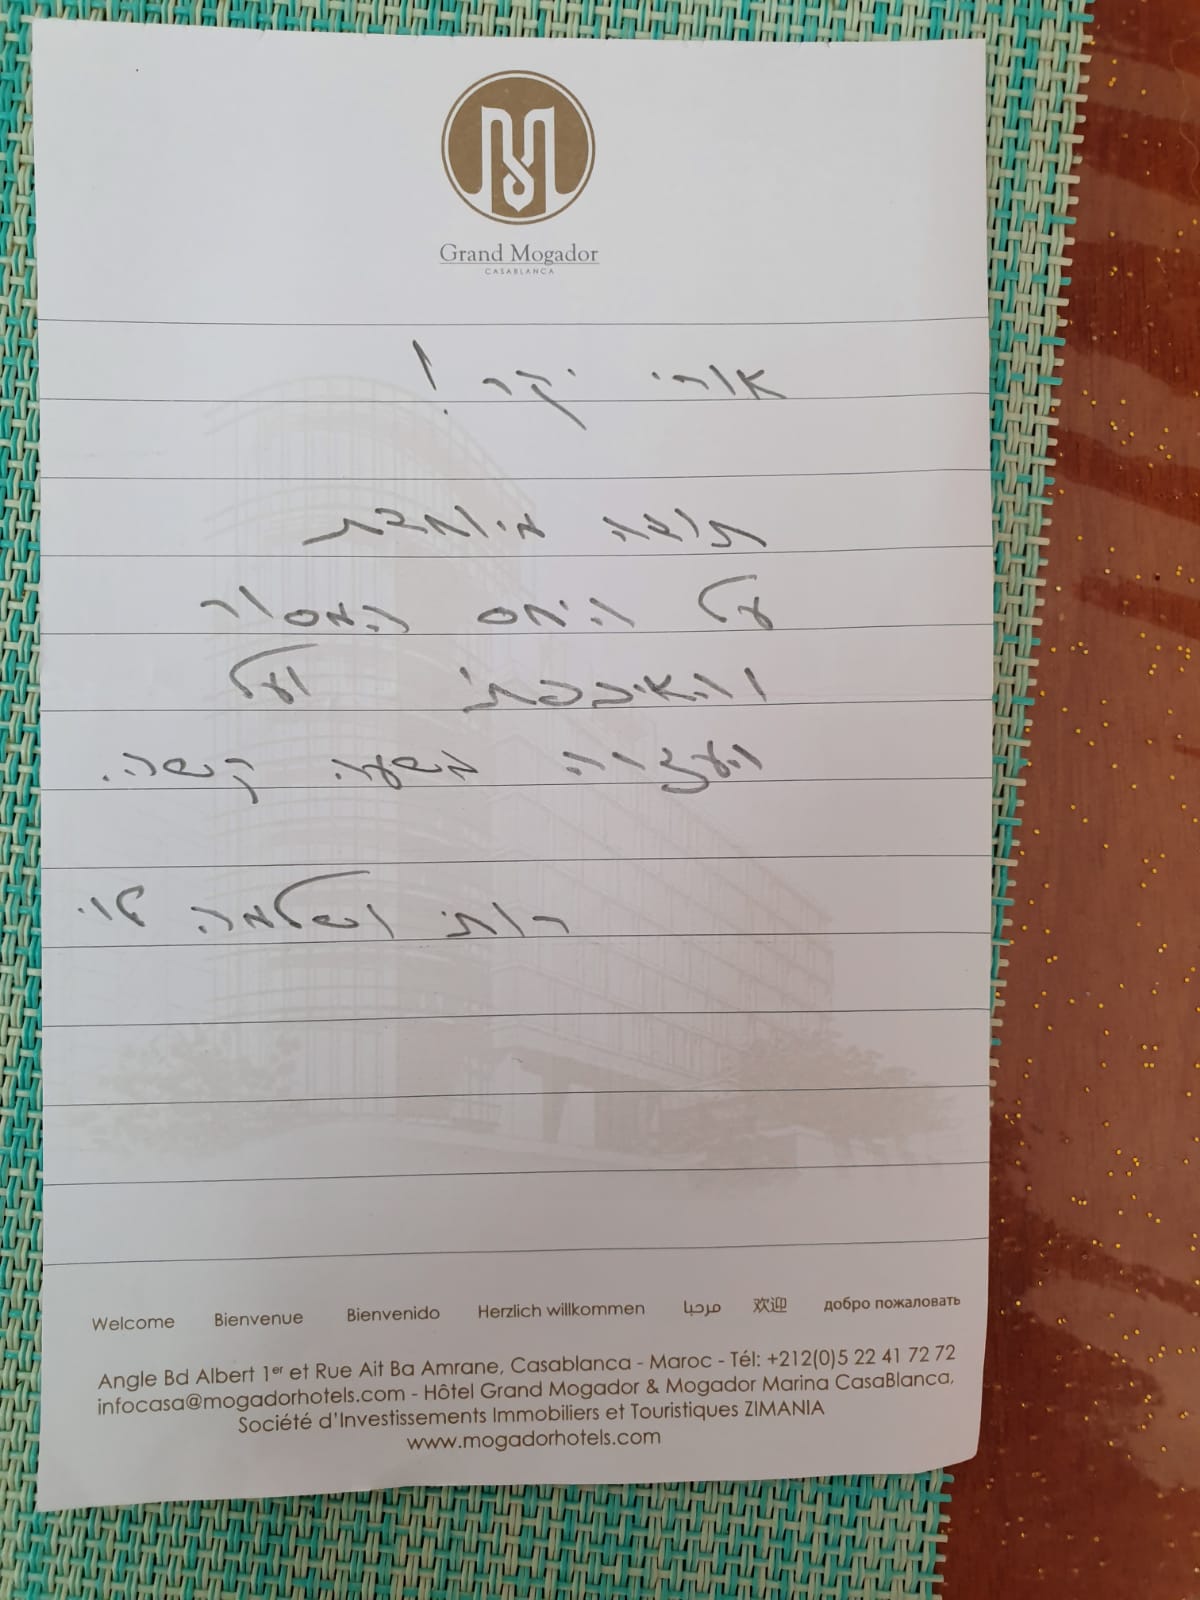 Grand Mogador
CASABLANCA
אורי יקר!
תודה מיוחדת
על היחס המסור
והאיכפתי ועל
העזרה בשעה קשה.
רותי ושלמה לוי
Welcome Bienvenue Bienvenido Herzlich willkommen مرحبا 欢迎 добро пожаловать
Angle Bd Albert 1er et Rue Ait Ba Amrane, Casablanca - Maroc - Tél: +212(0)5 22 41 72 72
infocasa@mogadorhotels.com - Hôtel Grand Mogador & Mogador Marina CasaBlanca,
Société d'Investissements Immobiliers et Touristiques ZIMANIA
www.mogadorhotels.com